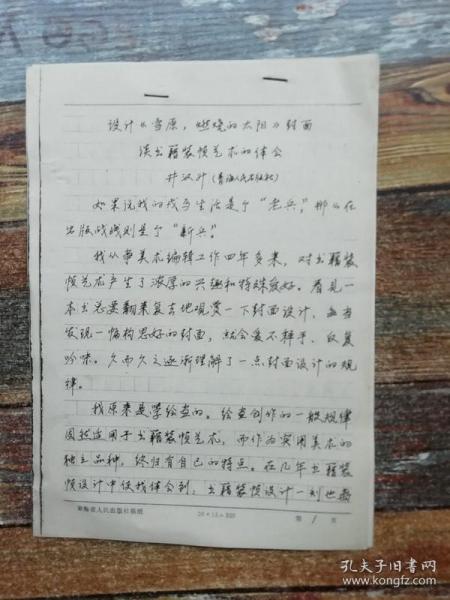 设计《雪原，燃烧的太阳》封面
谈书籍装帧艺术的体会
井汉升(青海人民出版社)
如果说我的戎马生活是个“老兵”，那么在
出版战线则是个“新兵”。
我从事美术编辑工作四年多来，对书籍装
帧艺术产生了浓厚的兴趣和特殊爱好。看见一
本书总要翻来复去地观赏一下封面设计，每当
发现一幅构思好的封面，就会爱不释手、反复
吟味。久而久之逐渐理解了一点封面设计的规
律。
我原来是学绘画的。绘画创作的一般规律
固然适用于书籍装帧艺术，而作为实用美术的
独立品种，终归有自己的特点。在几年书籍装
帧设计中使我体会到，书籍装帧设计一刻也离
青海省人民出版社稿纸
20×15=300
第 1 页
孔夫子旧书网
www.kongfz.com